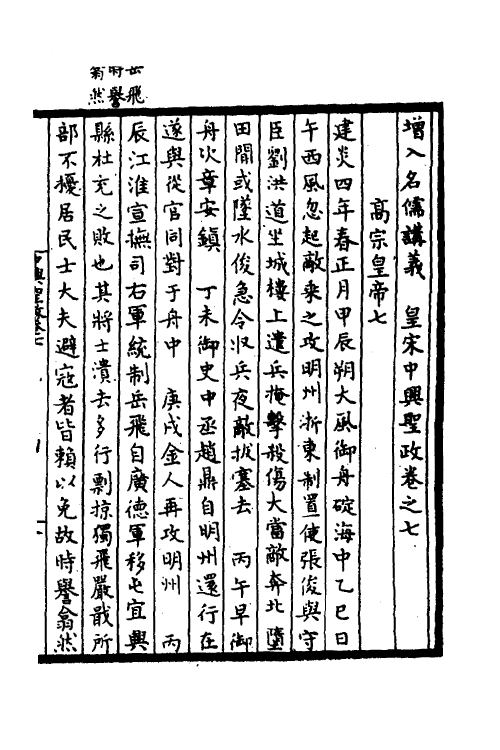 岳飛
時譽
翕然
增入名儒講義　皇宋中興聖政卷之七
高宗皇帝七
建炎四年春正月甲辰朔大風御舟碇海中乙巳日
午西風忽起敵乗之攻明州浙東制置使張俊與守
臣劉洪道坐城樓上遣兵掩擊殺傷大當敵奔北墮
田間或墜水俊急令收兵夜敵拔寨去　丙午早御
舟次章安鎮　丁未御史中丞趙鼎自明州還行在
遂與從官同對于舟中　庚戌金人再攻明州　丙
辰江淮宣撫司右軍統制岳飛自廣德軍移屯宜興
縣杜充之敗也其將士潰去多行剽掠獨飛嚴戢所
部不擾居民士大夫避寇者皆賴以免故時譽翕然
中興聖政卷七